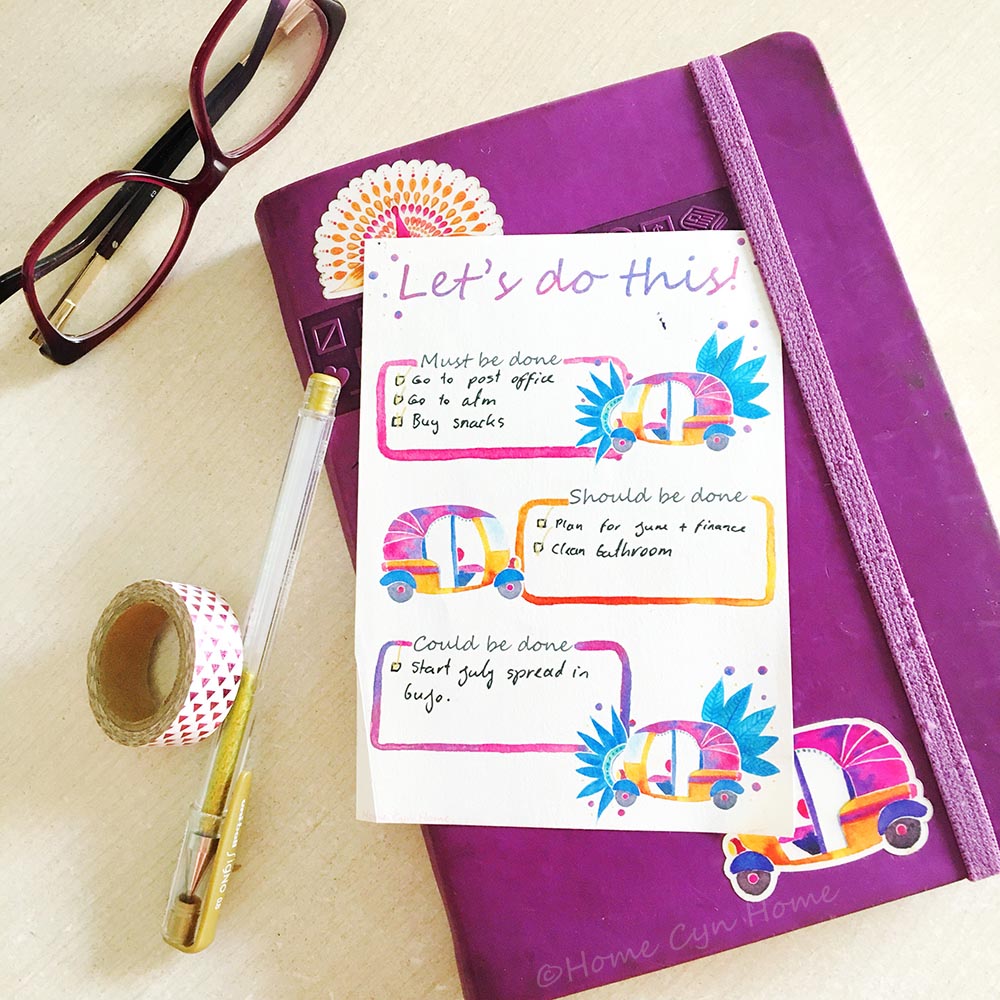 Let's do this!
Must be done
Go to post office
Go to atm
Buy snacks
Should be done
Plan for June + finance
Clean bathroom
Could be done
Start July spread in
BuJo.
SIGNO
©Home Cyn Home